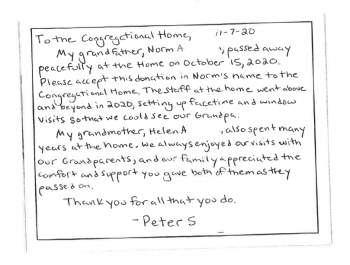 To the Congregational Home, 11-7-20
My grandfather, Norm A , passed away
peacefully at the Home on October 15, 2020.
Please accept this donation in Norm's name to the
Congregational Home. The staff at the home went above
and beyond in 2020, setting up facetime and window
visits so that we could see our Grandpa.
My grandmother, Helen A , also spent many
years at the home. We always enjoyed our visits with
our Grandparents, and our family appreciated the
comfort and support you gave both of them as they
passed on.
Thank you for all that you do.
- Peter S